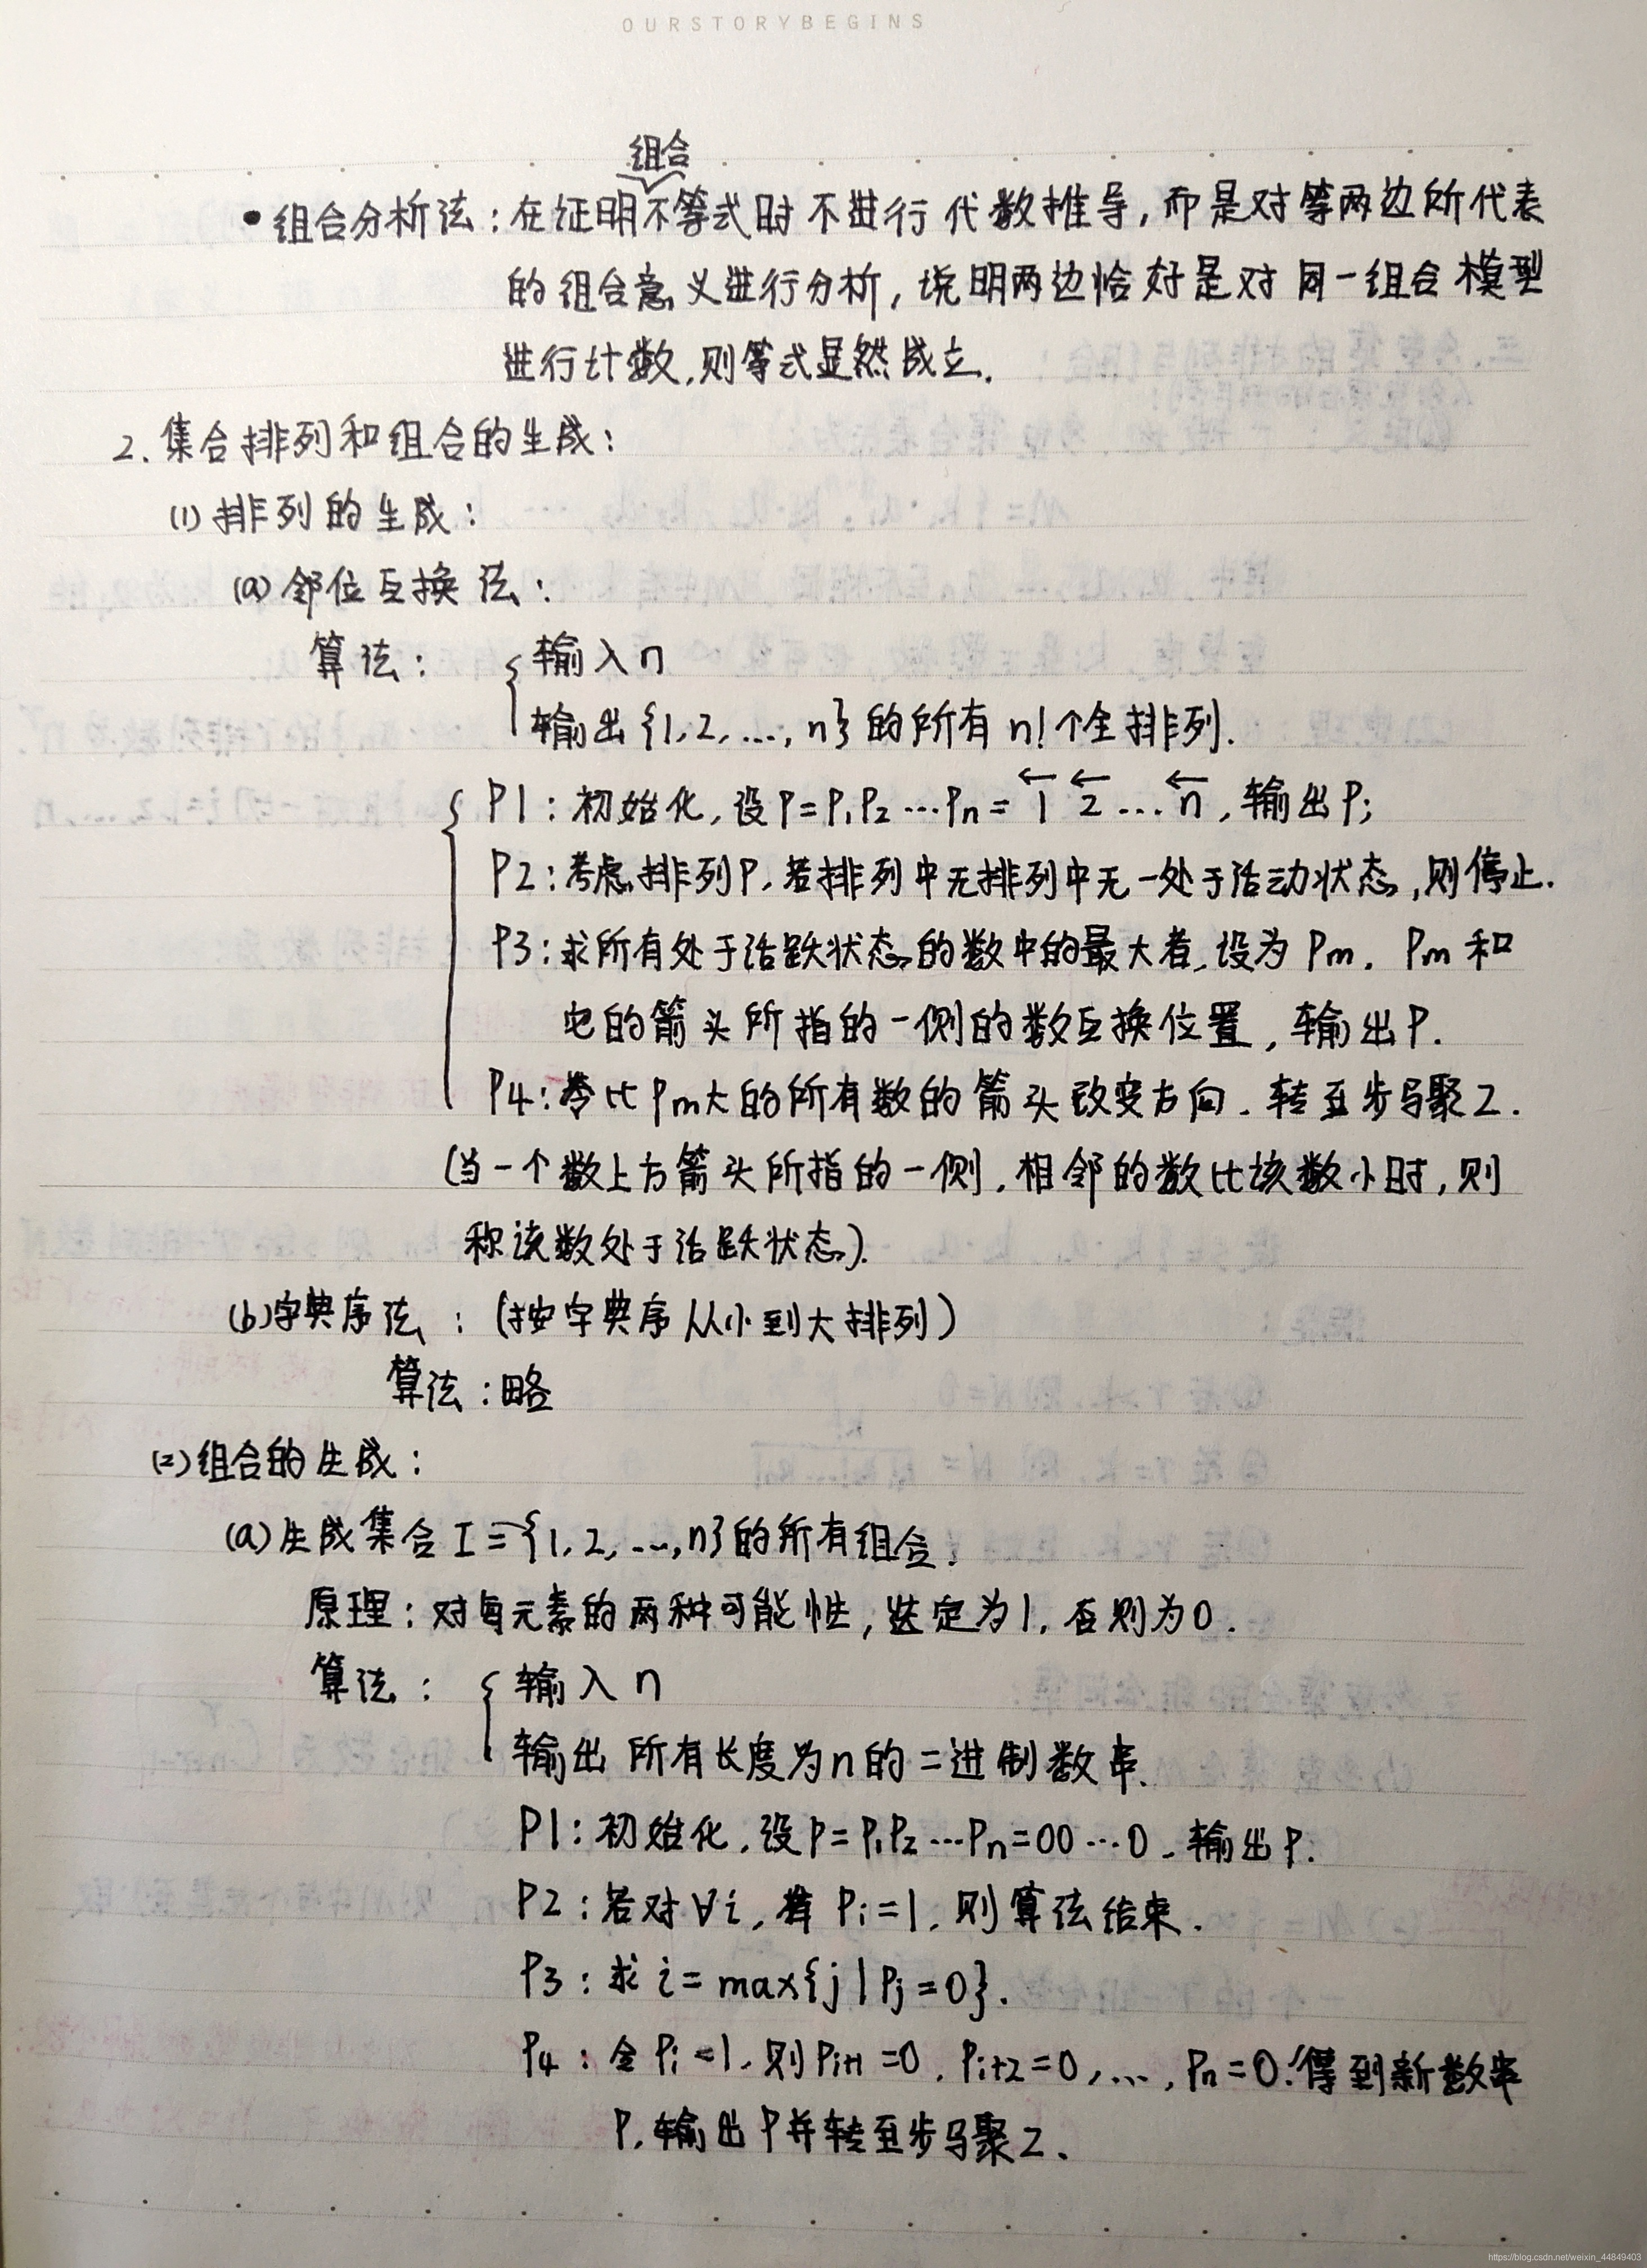 OURSTORYBEGINS
组合
• 组合分析法：在证明不等式时不进行代数推导，而是对等两边所代表
的组合意义进行分析，说明两边恰好是对同一组合模型
进行计数，则等式显然成立.
2. 集合排列和组合的生成：
(1) 排列的生成：
(a) 邻位互换法：
算法： { 输入n
输出{1,2,...,n}的所有n!个全排列.
P1：初始化，设P=P₁P₂...Pₙ=←1 ←2 ... ←n，输出P;
P2：考虑排列P，若排列中无排列中无一处于活动状态，则停止.
P3：求所有处于活跃状态的数中的最大者，设为Pm，Pm和
它的箭头所指的一侧的数互换位置，输出P.
P4：令比Pm大的所有数的箭头改变方向，转至步骤2.
(当一个数上方箭头所指的一侧，相邻的数比该数小时，则
称该数处于活跃状态).
(b) 字典序法：(按字典序从小到大排列)
算法：略
(2) 组合的生成：
(a) 生成集合I={1,2,...,n}的所有组合.
原理：对每元素的两种可能性，选定为1，否则为0.
算法： { 输入n
输出所有长度为n的二进制数串.
P1：初始化，设P=P₁P₂...Pₙ=00...0，输出P.
P2：若对∀i，有Pi=1，则算法结束.
P3：求i=max{j|Pj=0}.
P4：令Pi=1，则Pi+1=0，Pi+2=0，...，Pn=0.得到新数串
P，输出P并转至步骤2.
https://blog.csdn.net/weixin_44849403